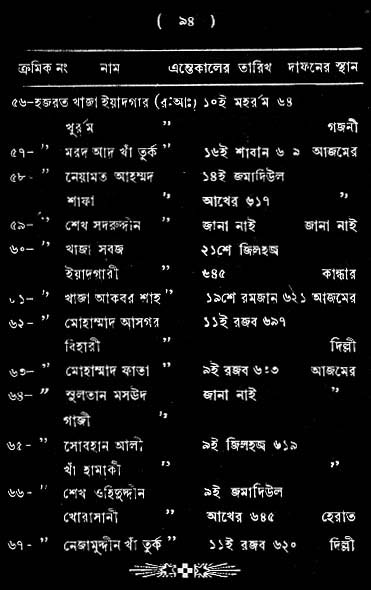 ( ৯৪ )
ক্রমিক নং নাম এন্তেকালের তারিখ দাফনের স্থান
৫৬-হজরত খাজা ইয়াদগার (র:আঃ) ১০ই মহর্রম ৬৪
খুর্রম ” গজনী
৫৭- ” মরদ আদ খাঁ তুর্ক ” ১৬ই শাবান ৬ ৯ আজমের
৫৮- ” নেয়ামত আহম্মদ ১৪ই জমাদিউল
শাফা ” আখের ৬১৭ ”
৫৯- ” শেখ সদরুদ্দীন জানা নাই জানা নাই
৬০- ” খাজা সবজ ২১শে জিলহজ্ব
ইয়াদগারী ” ৬৪৫ কান্ধার
৬১- ” খাজা আকবর শাহ ” ১৯শে রমজান ৬২১ আজমের
৬২- ” মোহাম্মাদ আসগর ১১ই রজব ৬৯৭
বিহারী ” দিল্লী
৬৩- ” মোহাম্মাদ ফাতা ” ৯ই রজব ৬:৩ আজমের
৬৪- ” সুলতান মসউদ জানা নাই ”
গাজী ”
৬৫- ” সোবহান আলী ৯ই জিলহজ্ব ৬১৯
খাঁ হামাকী ” ”
৬৬- ” শেখ ওহিদুদ্দীন ৯ই জমাদিউল
খোরাসানী ” আখের ৬৪৫ হেরাত
৬৭- ” নেজামুদ্দীন খাঁ তুর্ক ” ১১ই রজব ৬২০ দিল্লী